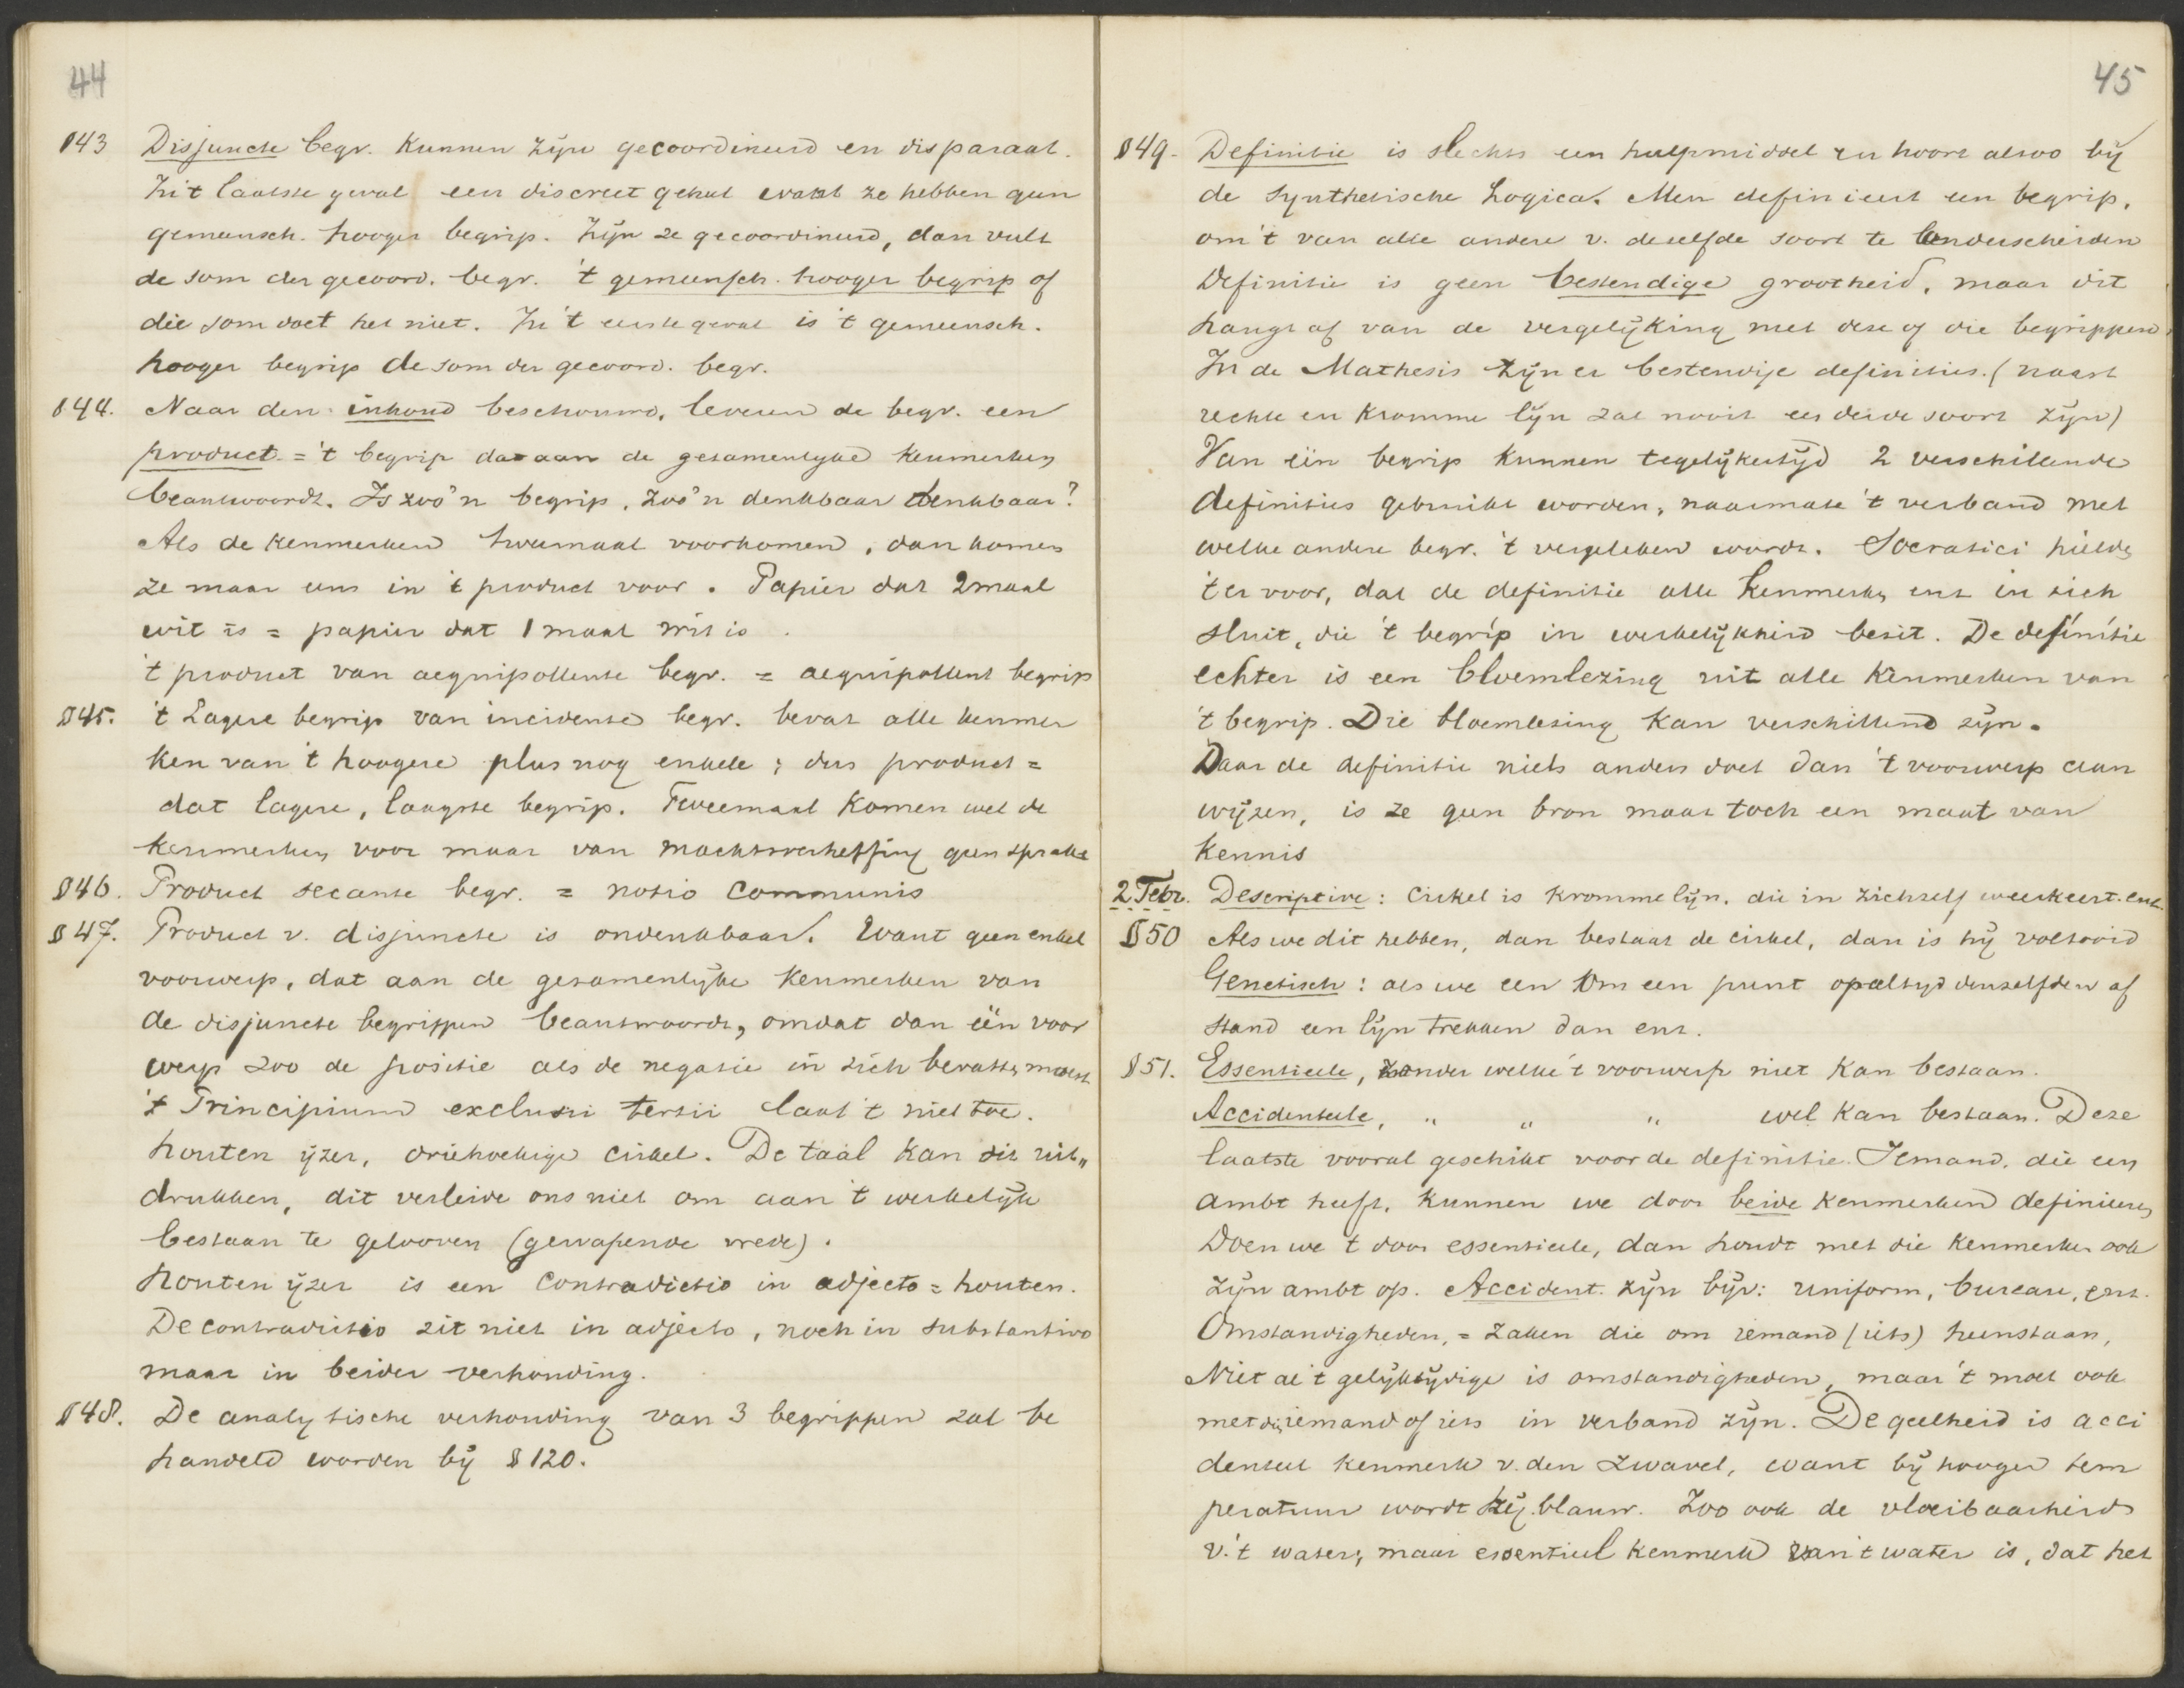 44
§43 Disjuncte begr. kunnen zijn gecoordineerd en disparaat.
In 't laatste geval een discreet geheel want ze hebben geen
gemeensch. hooger begrip. Zijn ze gecoordineerd, dan vult
de som der gecoord. begr. 't gemeensch. hooger begrip of
die som doet het niet. In 't eerste geval is 't gemeensch.
hooger begrip de som der gecoord. begr.
§44. Naar den inhoud beschouwd, leveren de begr. een
product = 't begrip dat aan de gezamenlijke kenmerken
beantwoordt. Is zoo'n begrip, zoo'n denkbaar denkbaar?
Als de kenmerken tweemaal voorkomen, dan komen
ze maar eens in 't product voor. Papier dat 2maal
wit is = papier dat 1 maal wit is.
't product van aequipollente begr. = aequipollent begrip
§45. 't Lagere begrip van incidente begr. bevat alle kenmer
ken van 't hoogere plus nog enkele; dus product =
dat lagere, laagste begrip. Tweemaal komen wel de
kenmerken voor maar van machtsverheffing geen sprake
§46. Product secante begr. = notio communis
§47. Product v. disjuncte is ondenkbaar. Want geen enkel
voorwerp, dat aan de gezamenlijke kenmerken van
de disjuncte begrippen beantwoordt, omdat dan één voor
werp zoo de positie als de negatie in zich bevatten moest.
't Principium exclusii tertii laat 't niet toe.
houten ijzer, driehoekige cirkel. De taal kan dit uit„
drukken, dit verleide ons niet om aan 't werkelijk
bestaan te gelooven (gewapende vrede).
Houten ijzer is een contradictio in adjecto = houten.
De contradictio zit niet in adjecto, noch in substantivo
maar in beider verhouding.
§48. De analytische verhouding van 3 begrippen zal be
handeld worden bij § 120.
45
§49. Definitie is slechts een hulpmiddel en hoort alzoo bij
de synthetische Logica. Men definieert een begrip,
om 't van alle andere v. dezelfde soort te onderscheiden
Definitie is geen bestendige grootheid, maar dit
hangt af van de vergelijking met deze of die begrippen.
In de Mathesis zijn er bestendige definities. (naast
rechte en kromme lijn zal nooit een derde soort zijn)
Van één begrip kunnen tegelijkertijd 2 verschillende
definities gebruikt worden, naarmate 't verband met
welke andere begr. 't vergeleken wordt. Socratici hielden
't er voor, dat de definitie alle kenmerken enz in zich
sluit, die 't begrip in werkelijkheid bezit. De definitie
echter is een bloemlezing uit alle kenmerken van
't begrip. Die bloemlezing kan verschillend zijn.
Daar de definitie niets anders doet dan 't voorwerp aan
wijzen, is ze geen bron maar toch een maat van
kennis
2 Febr. Descriptive: Cirkel is kromme lijn, die in zichzelf weerkeert. enz.
§50 Als we dit hebben, dan bestaat de cirkel, dan is hij voltooid
Genetisch: als we een om een punt op altijd denzelfden af
stand een lijn trekken dan enz.
§51. Essentieele, zonder welke 't voorwerp niet kan bestaan.
Accidenteele, " " " wel kan bestaan. Deze
laatste vooral geschikt voor de definitie. Iemand, die een
ambt heeft, kunnen we door beide kenmerken definieeren
Doen we 't door essentieele, dan houdt met die kenmerken ook
zijn ambt op. Accident. zijn bijv: uniform, bureau, enz.
Omstandigheden, = zaken die om iemand (iets) heenstaan,
Niet al 't gelijktijdige is omstandigheden, maar 't moet ook
met dien iemand of iets in verband zijn. De geelheid is acci
denteel kenmerk v. den zwavel, want bij hooger tem
peratuur wordt hij blauw. Zoo ook de vloeibaarheid
v. 't water, maar essentieel kenmerk van 't water is, dat het